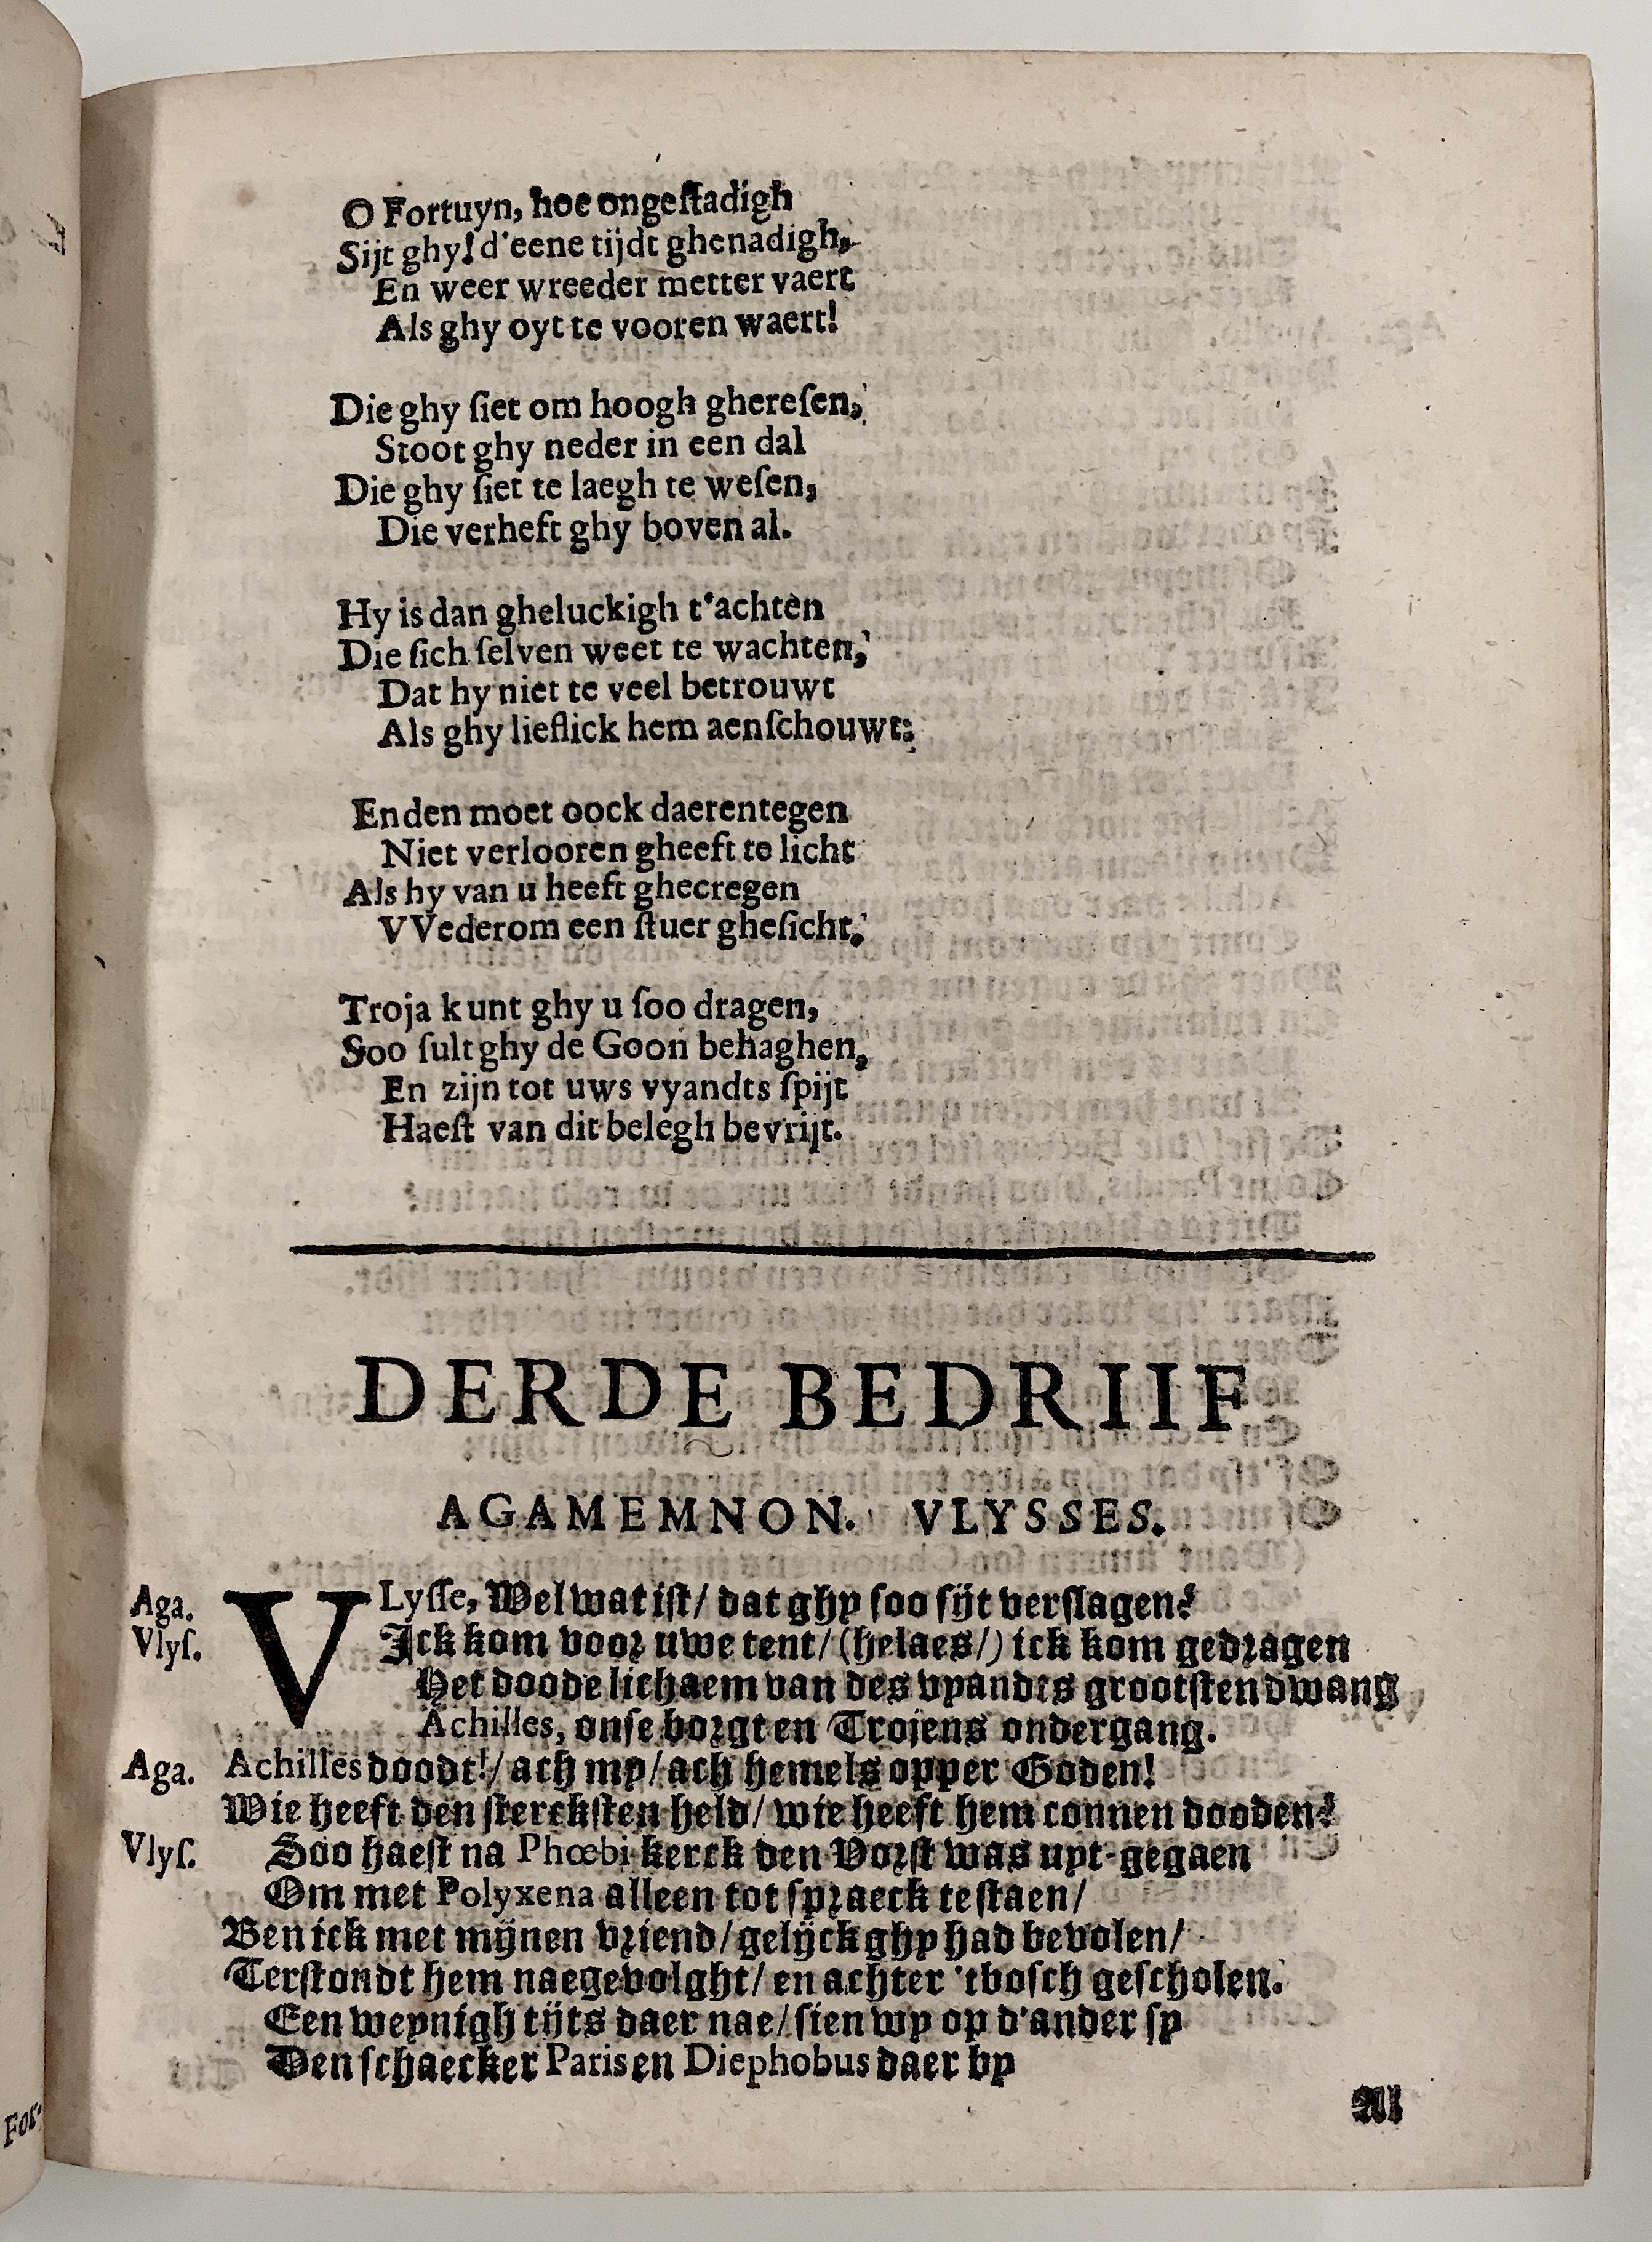 O Fortuyn, hoe ongeſtadigh
Sijt ghy! d'eene tijdt ghenadigh,
En weer wreeder metter vaert
Als ghy oyt te vooren waert!
Die ghy ſiet om hoogh ghereſen,
Stoot ghy neder in een dal
Die ghy ſiet te laegh te weſen,
Die verheft ghy boven al.
Hy is dan gheluckigh t'achten
Die ſich ſelven weet te wachten,
Dat hy niet te veel betrouwt
Als ghy lieflick hem aenſchouwt:
En den moet oock daerentegen
Niet verlooren gheeft te licht
Als hy van u heeft ghecregen
VVederom een ſtuer gheſicht.
Troja kunt ghy u ſoo dragen,
Soo ſult ghy de Goon behaghen,
En zijn tot uws vyandts ſpijt
Haeſt van dit belegh bevrijt.
DERDE BEDRIIF
AGAMEMNON. VLYSSES.
Aga. VLyſſe, Wel wat iſt/ dat ghy ſoo ſijt verſlagen?
Vlyſ. Ick kom voor uwe tent/ (helaes/) ick kom gedragen
Het doode lichaem van des vyandts grootſten dwang
Achilles, onſe borgt en Trojens ondergang.
Aga. Achilles doodt!/ ach my/ ach hemels opper Goden!
Wie heeft den ſterckſten held/ wie heeft hem connen dooden?
Vlyſ. Soo haeſt na Phœbi kerck den Vorſt was uyt-gegaen
Om met Polyxena alleen tot ſpraeck te ſtaen/
Ben ick met mijnen vriend/ gelijck ghy had bevolen/
Terſtondt hem naegevolght/ en achter 'tboſch geſcholen.
Een weynigh tijts daer nae/ ſien wy op d'ander ſy
Den ſchaecker Paris en Diephobus daer by
Al
For-